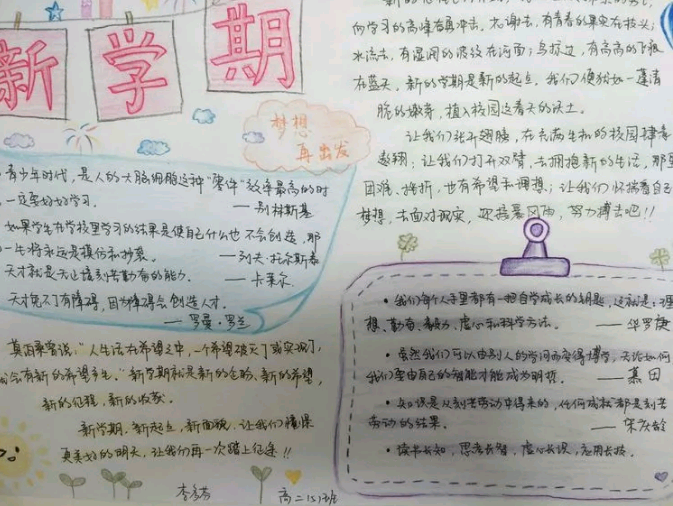 新学期
梦想
再出发
青少年时代，是人的大脑细胞这种“零件”效率最高的时
一定要好好学习。
——别林斯基
如果学生在学校里学习的结果是使自己什么也不会创造，那
一生将永远是模仿和抄袭。
——列夫·托尔斯泰
天才就是无止境刻苦勤奋的能力。
——卡莱尔
天才免不了有障碍，因为障碍会创造人才。
——罗曼·罗兰
莫泊桑曾说：“人生活在希望之中，一个希望破灭了或实现了，
会有新的希望产生。”新学期就是新的企盼、新的希望，
新的征程，新的收获。
新学期，新起点，新面貌，让我们憧憬
更美好的明天，让我们再一次踏上征途！！
高二(5)班
向学习的高峰奋勇冲击。花谢去，有青青的果实在枝头；
水流去，有湿润的波纹在河面；鸟掠过，有高高的飞翔
在蓝天。新的学期是新的起点，我们便犹如一蓬清
脆的嫩芽，植入校园这春天的沃土。
让我们张开翅膀，在充满生机的校园肆意
遨翔；让我们打开双臂，去拥抱新的生活，那里
困难、挫折，也有希望和理想；让我们怀揣着自己
梦想，去面对现实，迎接暴风雨，努力搏击吧！！
·我们每个人手里都有一把自学成长的钥匙，这就是：理
想、勤奋、毅力、虚心和科学方法。——华罗庚
·虽然我们可以由别人的学问而变得博学，无论如何
我们要由自己的智能才能成为明哲。
——慕田
·知识是从刻苦劳动中得来的，任何成就都是刻苦
劳动的结果。
——宋庆龄
·读书长知，思考长智，虚心长识，应用长技。